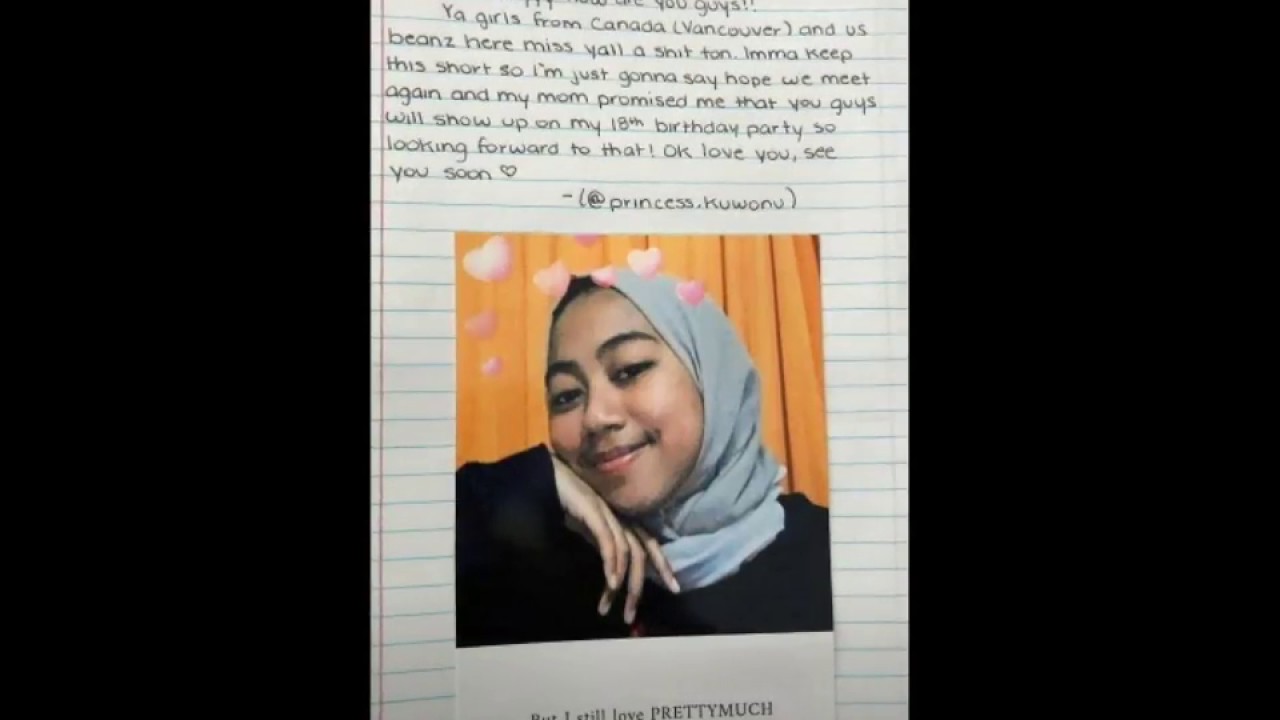 you guys!!
Ya girls from Canada (Vancouver) and us
beanz here miss yall a shit ton. Imma keep
this short so I'm just gonna say hope we meet
again and my mom promised me that you guys
will show up on my 18th birthday party so
looking forward to that! Ok love you, see
you soon ♡
-(@princess.kuwonu)
But I still love PRETTYMUCH